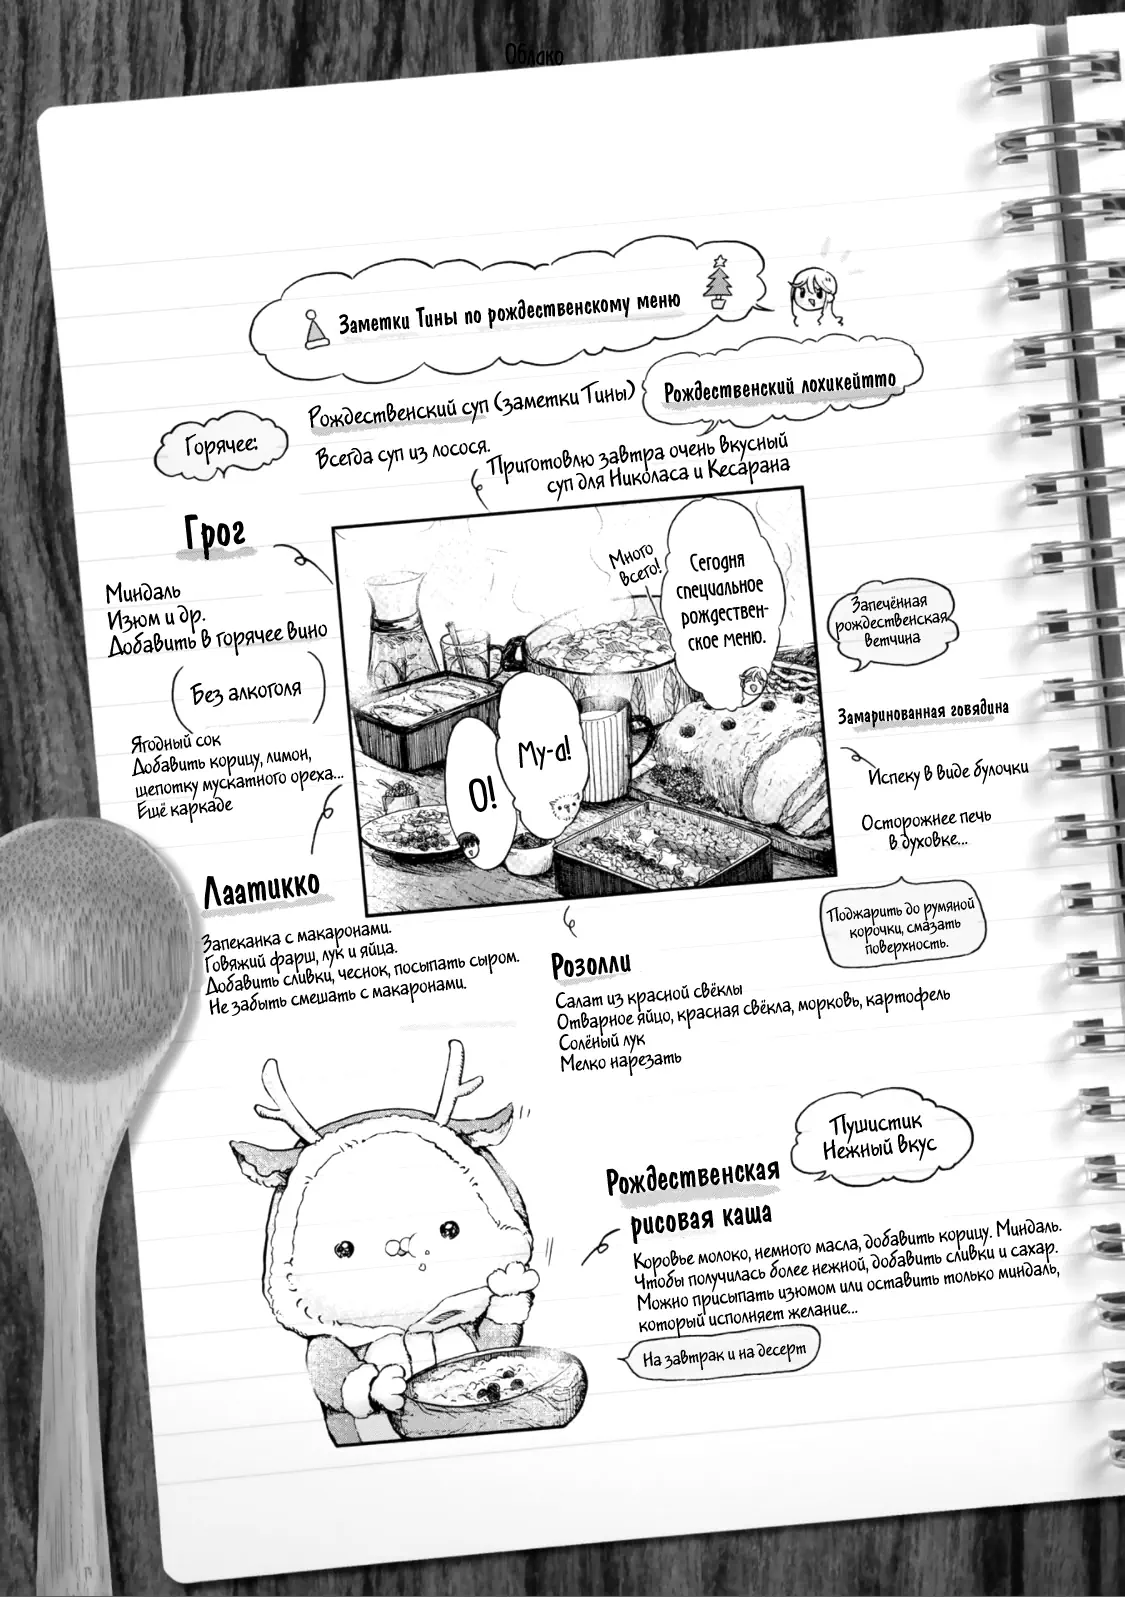 Облако
Заметки Тины по рождественскому меню
Горячее:
Рождественский суп (заметки Тины)
Рождественский лохикейтто
Всегда суп из лосося.
Приготовлю завтра очень вкусный
суп для Николаса и Кесарана
Грог
Миндаль
Изюм и др.
Добавить в горячее вино
Без алкоголя
Ягодный сок
Добавить корицу, лимон,
щепотку мускатного ореха...
Ещё каркаде
Много
всего!
Сегодня
специальное
рождествен-
ское меню.
Му-а!
О!
Запечённая
рождественская
ветчина
Замаринованная говядина
Испеку в виде булочки
Осторожнее печь
в духовке...
Поджарить до румяной
корочки, смазать
поверхность.
Лаатикко
Запеканка с макаронами.
Говяжий фарш, лук и яйца.
Добавить сливки, чеснок, посыпать сыром.
Не забыть смешать с макаронами.
Розолли
Салат из красной свёклы
Отварное яйцо, красная свёкла, морковь, картофель
Солёный лук
Мелко нарезать
Пушистик
Нежный вкус
Рождественская
рисовая каша
Коровье молоко, немного масла, добавить корицу. Миндаль.
Чтобы получилась более нежной, добавить сливки и сахар.
Можно присыпать изюмом или оставить только миндаль,
который исполняет желание...
На завтрак и на десерт